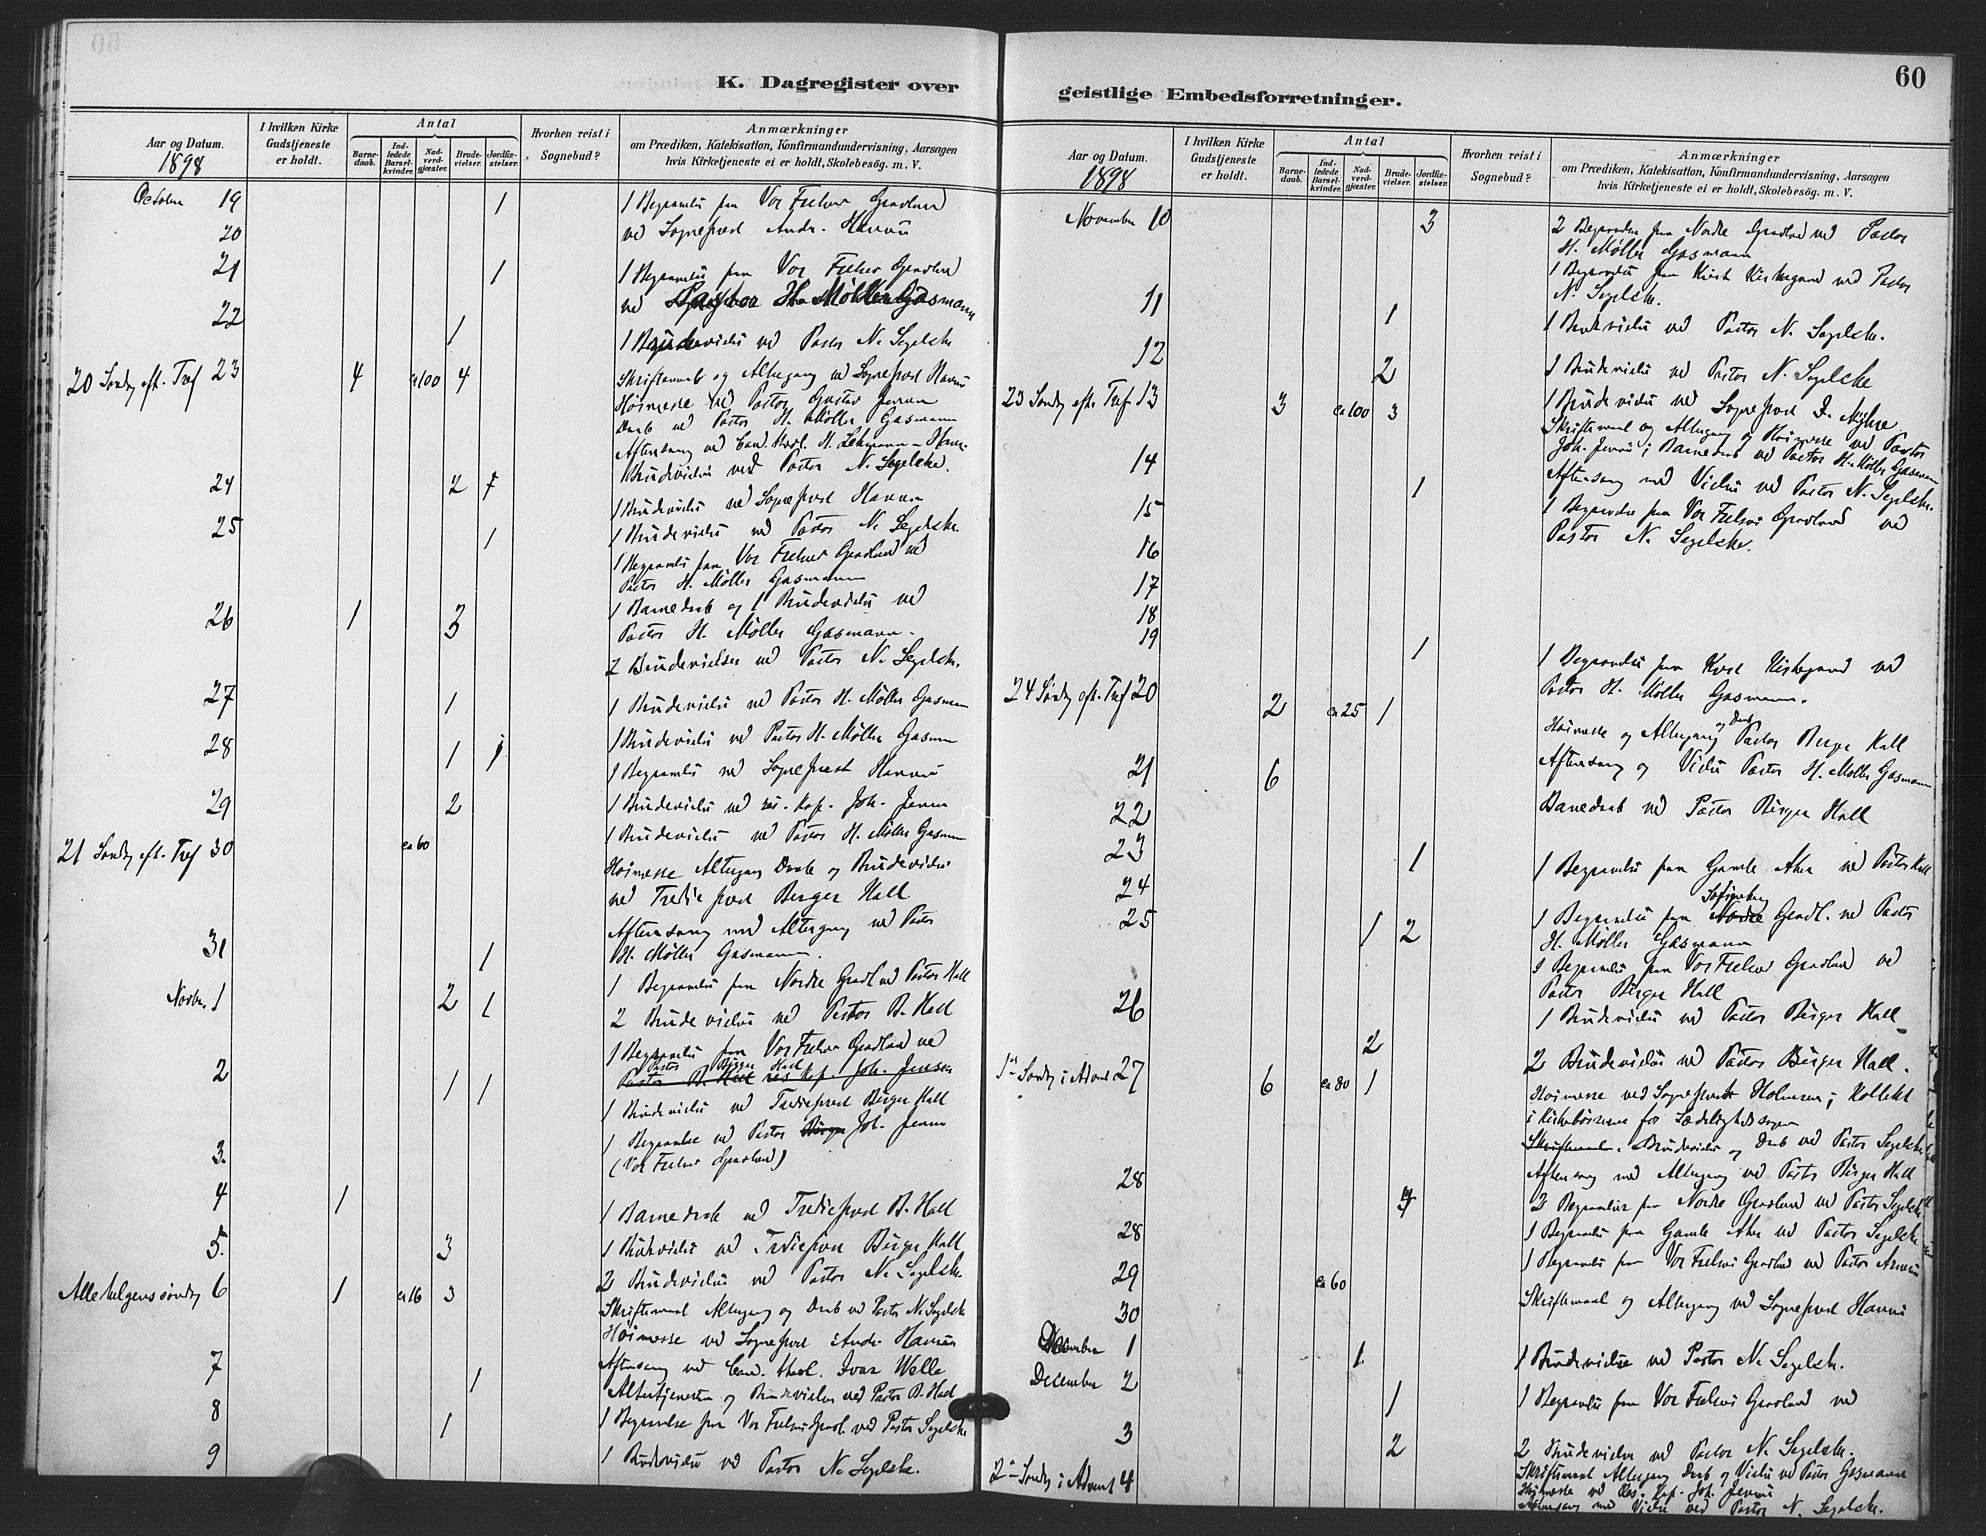 60
K. Dagregister over
geistlige Embedsforretninger.
Aar og Datum.
1898
I hvilken Kirke Gudstjeneste er holdt.
Antal
Barnedaab.
Indledede Barselkvinder.
Nadverdgjæster.
Brudevielser.
Jordfæstelser.
Hvorhen reist i Sognebud?
Anmærkninger
om Prædiken, Katekisation, Konfirmandundervisning, Aarsagen
hvis Kirketjeneste ei er holdt, Skolebesøg. m. V.
October 19 1 1 Begravelse fra Vor Frelser Gravlund
20 ved Sognepræst Andr. Hansen
21 1 1 Begravelse fra Vor Frelser Gravlund
ved Pastor H. Møller Gasmann
22 1 1 Brudevielse ved Pastor N. Segelcke
20 Søndag eft. Tref 23 4 ca 100 4 Skriftemaal og Altergang ved Sognepræst Hansen
Høimesse ved Pastor Gustav Jensen
Daab ved Pastor H. Møller Gasmann
Aftensang ved Cand. theol. H. Lehmann
Brudevielse ved Pastor N. Segelcke.
24 2 1 Brudevielse ved Sognepræst Hansen
1 Brudevielse ved Pastor N. Segelcke.
25 1 1 Begravelse fra Vor Frelser Gravlund ved
Pastor H. Møller Gasmann
26 1 3 1 Barnedaab og 1 Brudevielse ved
Pastor H. Møller Gasmann.
2 Brudevielser ved Pastor N. Segelcke.
27 1 1 Brudevielse ved Pastor H. Møller Gasmann
28 1 1 1 Brudevielse ved Pastor H. Møller Gasmann
1 Begravelse ved Sognepræst Hansen
29 2 1 Brudevielse ved res. Kap. Joh. Jensen
1 Brudevielse ved Pastor H. Møller Gasmann
21 Søndag eft. Tref 30 ca 60 Høimesse Altergang Daab og Brudevielse
ved Trediepræst Berger Hall
Aftensang med Altergang ved Pastor
H. Møller Gasmann.
31 1 1 Begravelse fra Nordre Gravl. ved Pastor Hall
Novbr. 1 2 1 2 Brudevielser ved Pastor B. Hall
1 Begravelse fra Vor Frelser Gravlund ved
Pastor Birger Hall
Pastor B. Hall res Kap. Joh. Jensen
2 1 1 1 Brudevielse ved Trediepræst Birger Hall
1 Begravelse ved Pastor Birger Joh. Jensen
(Vor Frelser Gravlund)
3.
4 1 1 Barnedaab ved Trediepræst B. Hall
5. 3 1 Brudevielse ved Trediepræst Birger Hall
2 Brudevielser ved Pastor N. Segelcke.
Allehelgenssøndag 6 1 ca 16 3 Skriftemaal Altergang og Daab ved Pastor N. Segelcke
Høimesse ved Sognepræst Andr. Hansen
Aftensang ved Cand. theol. Ivar Welle
Altertjenesten og Brudevielser ved Pastor B. Hall
7 1 1 Begravelse fra Vor Frelser Gravl. ved Pastor Segelcke
8 1 1 Brudevielse ved Pastor N. Segelcke.
9
Aar og Datum.
1898
I hvilken Kirke Gudstjeneste er holdt.
Antal
Barnedaab.
Indledede Barselkvinder.
Nadverdgjæster.
Brudevielser.
Jordfæstelser.
Hvorhen reist i Sognebud?
Anmærkninger
om Prædiken, Katekisation, Konfirmandundervisning, Aarsagen
hvis Kirketjeneste ei er holdt, Skolebesøg. m. V.
November 10 3 2 Begravelser fra Nordre Gravlund ved Pastor
H. Møller Gasmann
1 Begravelse fra Krist Kirkegaard ved Pastor
N. Segelcke.
11 1 1 Brudevielse ved Pastor N. Segelcke.
12 2 1 Brudevielse ved Pastor N. Segelcke
1 Brudevielse ved Sognepræst
23 Søndag eftr. Tref. 13 3 ca 100 3 Skriftemaal og Altergang og Høimesse ved Pastor
Joh. Jensen; Barnedaab ved Pastor H. Møller Gasmann
Aftensang med Vielse ved Pastor N. Segelcke.
14 1 1 Begravelse fra Vor Frelsers Gravlund ved
Pastor N. Segelcke.
15
16
17
18
19 1 1 Begravelse fra Krist Kirkegaard ved
Pastor H. Møller Gasmann.
24 Søndag eft. Tref 20 2 ca 25 1 Høimesse og Altergang og Daab Pastor Birger Hall
Aftensang og Vielse Pastor H. Møller Gasmann
21 6 Barnedaab ved Pastor Birger Hall
22
23 1 1 Begravelse fra Gamle Aker ved Pastor Hall
24
Sofienberg
25 1 2 1 Begravelse fra Nordre Gravl. ved Pastor
H. Møller Gasmann
1 Begravelse fra Vor Frelser Gravlund ved
Pastor Birger Hall
1 Brudevielse ved Pastor Birger Hall
26 2 2 Brudevielser ved Pastor Birger Hall.
1ste Søndag i Advent 27 6 ca 80 1 Høimesse ved Sognepræst Holmesen; Kollekt
i Kirkebøssene for Sædelighedssagen
Skriftemaal. Brudevielse og Daab ved Pastor Segelcke
Aftensang med Altergang ved Pastor Birger Hall
28 4 2 Begravelser fra Nordre Gravlund ved Pastor Segelcke
1 Begravelse fra Gamle Aker ved Pastor Segelcke
28 1 Begravelse fra Vor Frelsers Gravlund ved Pastor
29 ca 60 Skriftemaal og Altergang ved Sognepræst Hansen
30
December 1 1 1 Brudevielse ved Pastor N. Segelcke.
December 2 1 1 Begravelse fra Vor Frelsers Gravlund ved
3 2 2 Brudevielser ved Pastor N. Segelcke.
2den Søndag i Advent 4 Skriftemaal Altergang Daab og Vielse ved Pastor Gasmann
Høimesse ved Res. Kap. Joh. Jensen
Aftensang med Vielse ved Pastor N. Segelcke.